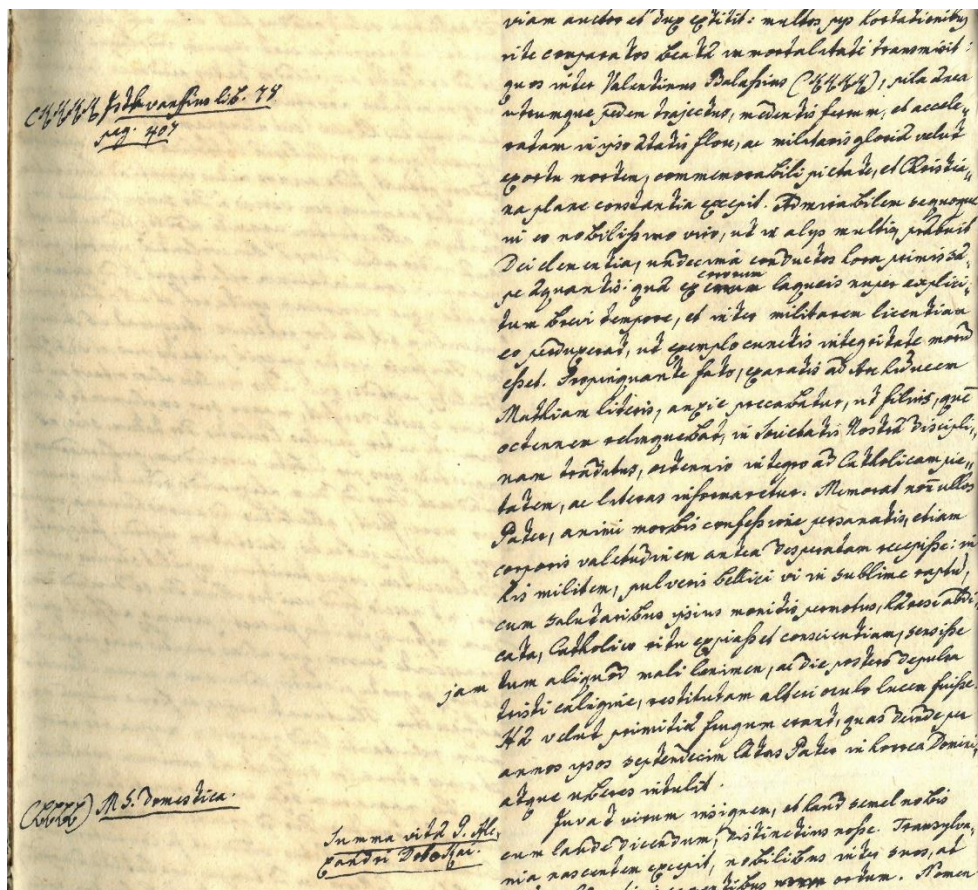 viam auctor et dux extitit: multos ejus hortationibus
rite comparatos beatæ immortalitati transmisit:
quos inter Valentinus Balassius (KKKK), pila ænea
utrumque pedem trajectus, medentis ferrum, et accele,,
ratam in ipso ætatis flore, ac militaris gloriæ velut
exortu mortem, commemorabili pietate, et Christia,,
na plane constantia excepit. Admirabilem se quoque
in eo nobilissimo viro, ut in alijs multis, præbuit
Dei clementia, undecima conductos hora primis sæ,,
pe æquantis: quæ ex eorum laqueis nuper explici,,
tum brevi tempore, et inter militarem licentiam
eo perduxerat, ut exemplo cunctis integritate morum
esset. Propinquante fato, exaratis ad Archiducem
Mathiam literis, anxie precabatur, ut filius, quem
octennem relinquebat, in Societatis Nostræ discipli,,
nam traditus, octennio integro ad Catholicam pie,,
tatem, ac literas informaretur. Memorat nonullos
Pater, animi morbis confessione persanatis, etiam
corporis valetudinem antea desperatam recepisse: in
his militem, pulveris bellici vi in sublime raptum,
cum salutaribus ipsius monitis permotus, hæresi abdi,,
cata, Catholico ritu expiasset conscientiam, sensisse
jam tum aliquod mali lenimen, ac die postero depulsa
tristi caligine, restitutam alteri oculo lucem fuisse.
Hæ velut primitiæ frugum erant, quas deinde per
annos ipsos septendecim lætas Pater in horrea Domini,
atque uberes intulit.
Juvat virum insignem, et haud semel nobis
cum laude dicendum, distinctius nosse. Transylva,,
nia nascentem excepit, nobilibus inter suos, at
ortum. Nomen
(KKKK) Isthvanffius lib. 78
pag. 407
(LLLL) M S. Domestica.
Summa vitæ P. Ale,,
xandri Dobokai.